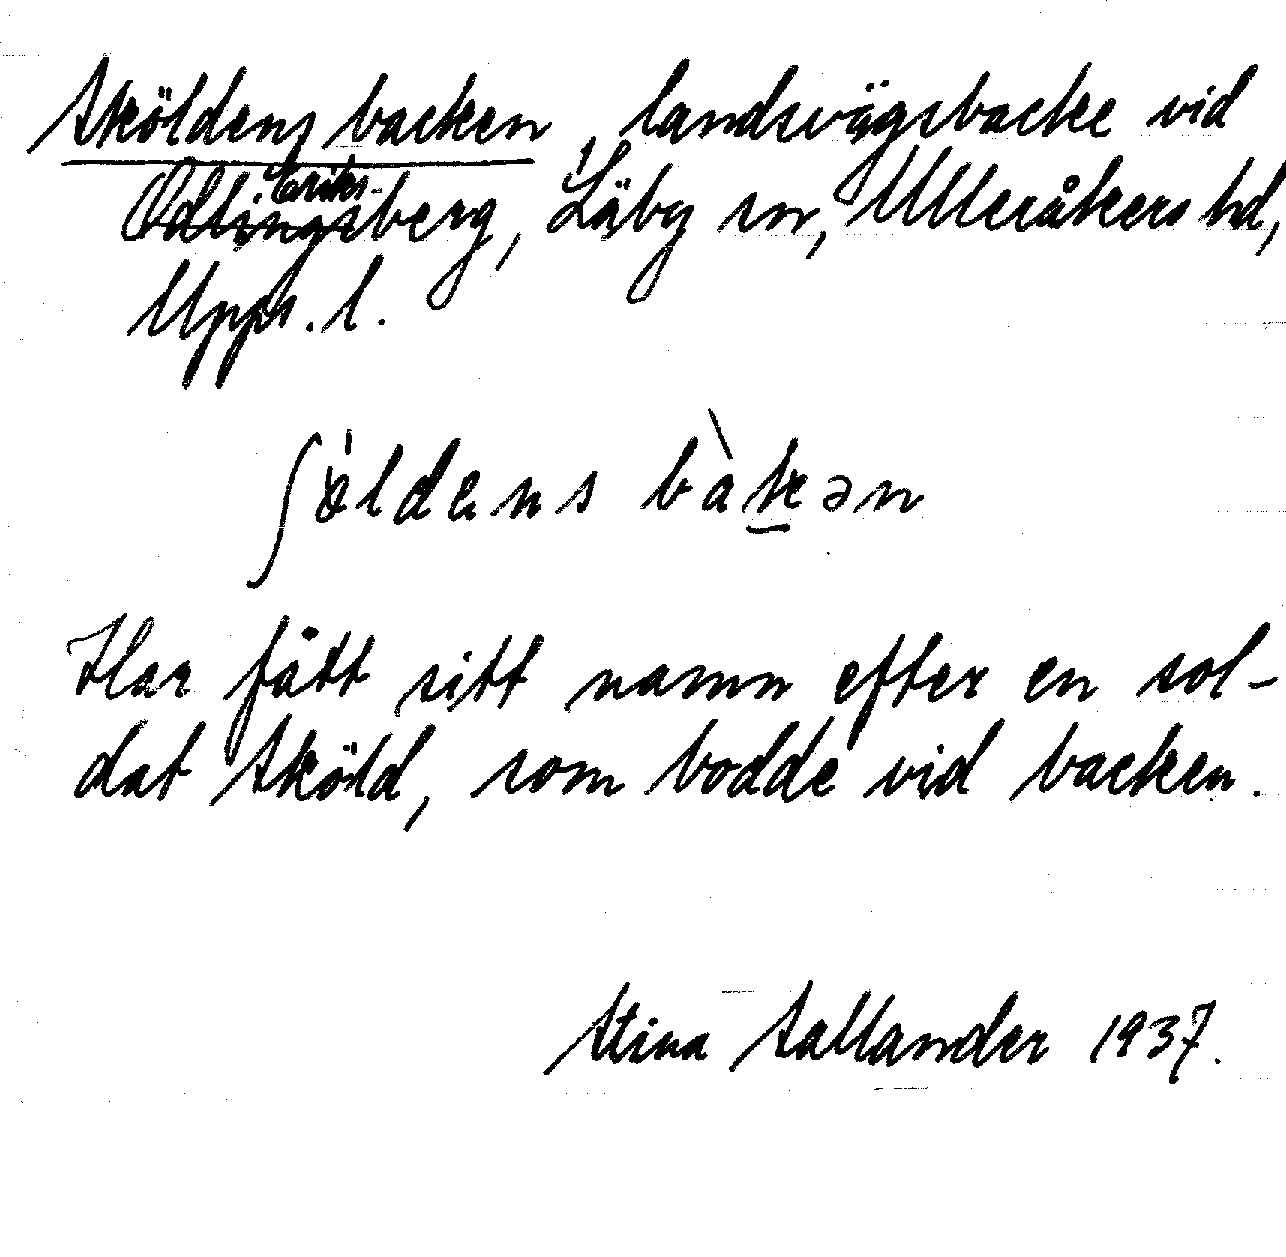 Sköldens backen, landsvägsbacke vid
Eriks-
Odlingsberg, Läby sn, Ulleråkers hd,
Upps. l.
ʃöldens bàkən
Har fått sitt namn efter en sol-
dat Sköld, som bodde vid backen.
Stina Sallander 1937.